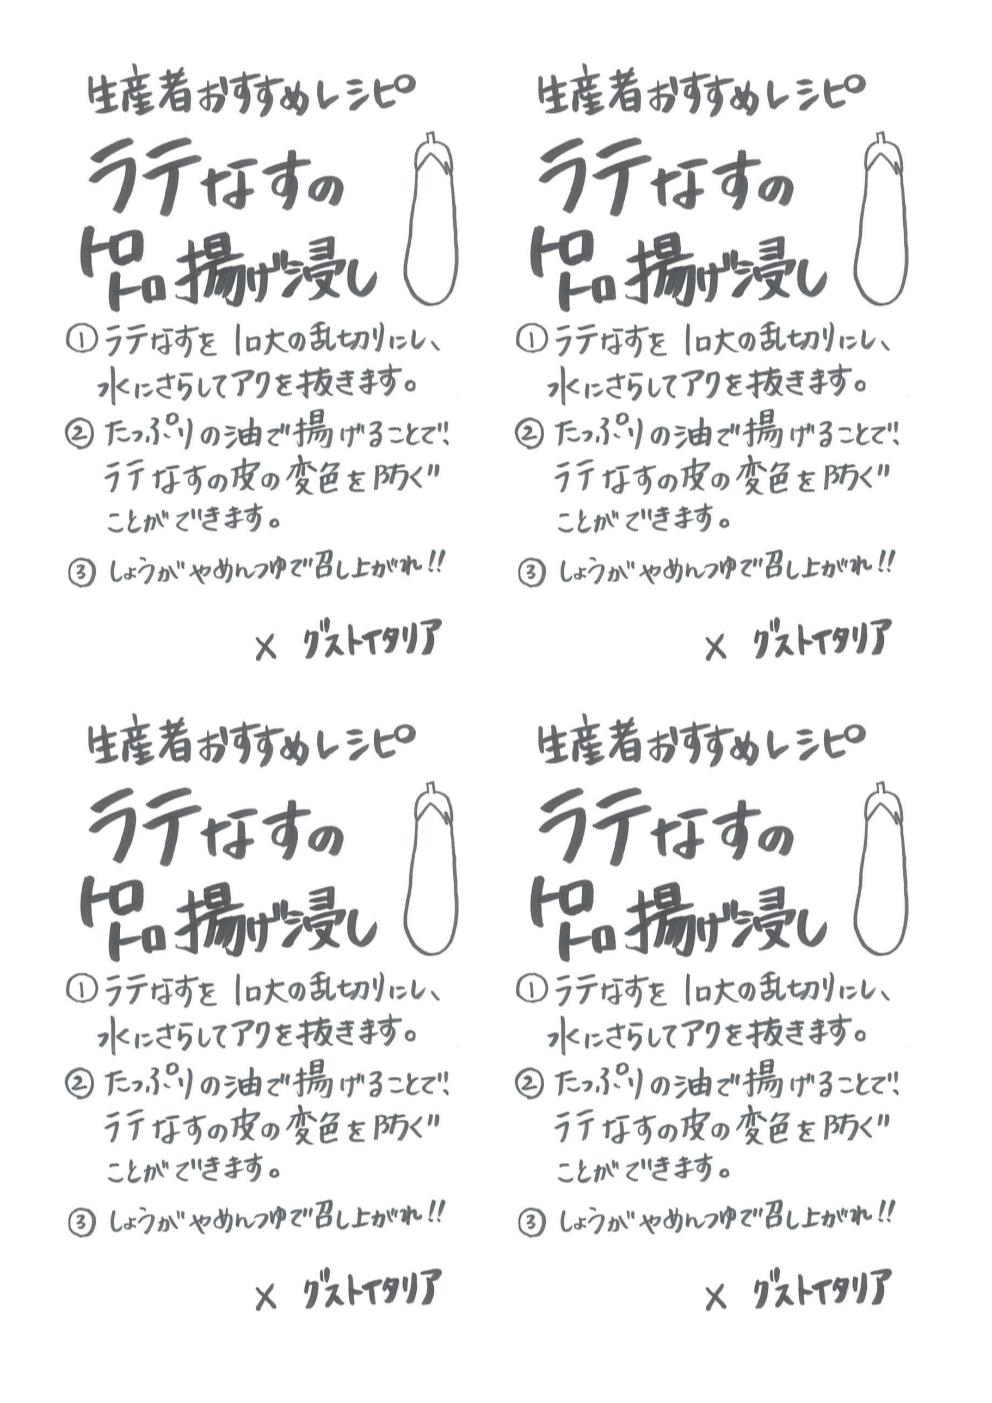 生産者おすすめレシピ
ラテなすの
トロトロ揚げ浸し
①ラテなすを1口大の乱切りにし、
水にさらしてアクを抜きます。
②たっぷりの油で揚げることで、
ラテなすの皮の変色を防ぐ
ことができます。
③しょうがやめんつゆで召し上がれ!!
× グストイタリア
生産者おすすめレシピ
ラテなすの
トロトロ揚げ浸し
①ラテなすを1口大の乱切りにし、
水にさらしてアクを抜きます。
②たっぷりの油で揚げることで、
ラテなすの皮の変色を防ぐ
ことができます。
③しょうがやめんつゆで召し上がれ!!
× グストイタリア
生産者おすすめレシピ
ラテなすの
トロトロ揚げ浸し
①ラテなすを1口大の乱切りにし、
水にさらしてアクを抜きます。
②たっぷりの油で揚げることで、
ラテなすの皮の変色を防ぐ
ことができます。
③しょうがやめんつゆで召し上がれ!!
× グストイタリア
生産者おすすめレシピ
ラテなすの
トロトロ揚げ浸し
①ラテなすを1口大の乱切りにし、
水にさらしてアクを抜きます。
②たっぷりの油で揚げることで、
ラテなすの皮の変色を防ぐ
ことができます。
③しょうがやめんつゆで召し上がれ!!
× グストイタリア